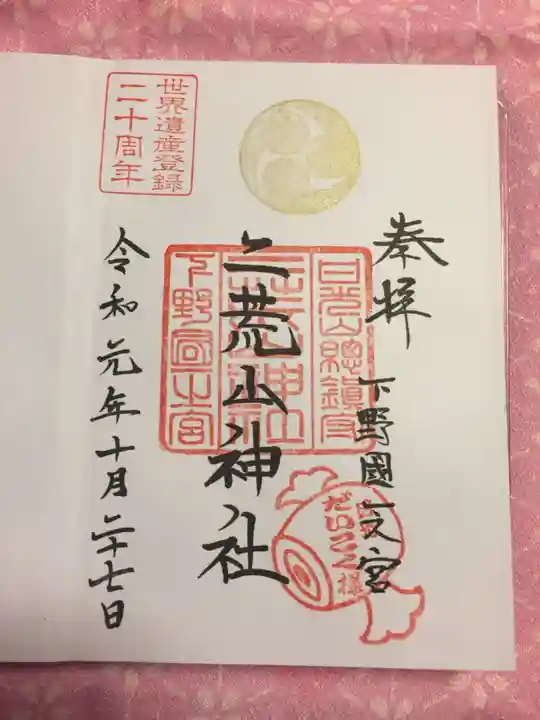 奉拝
下野國一之宮
二荒山神社
令和元年十月二十七日
世界遺産登録
二十周年
日光山総鎮守
下野國一之宮
だいこく様